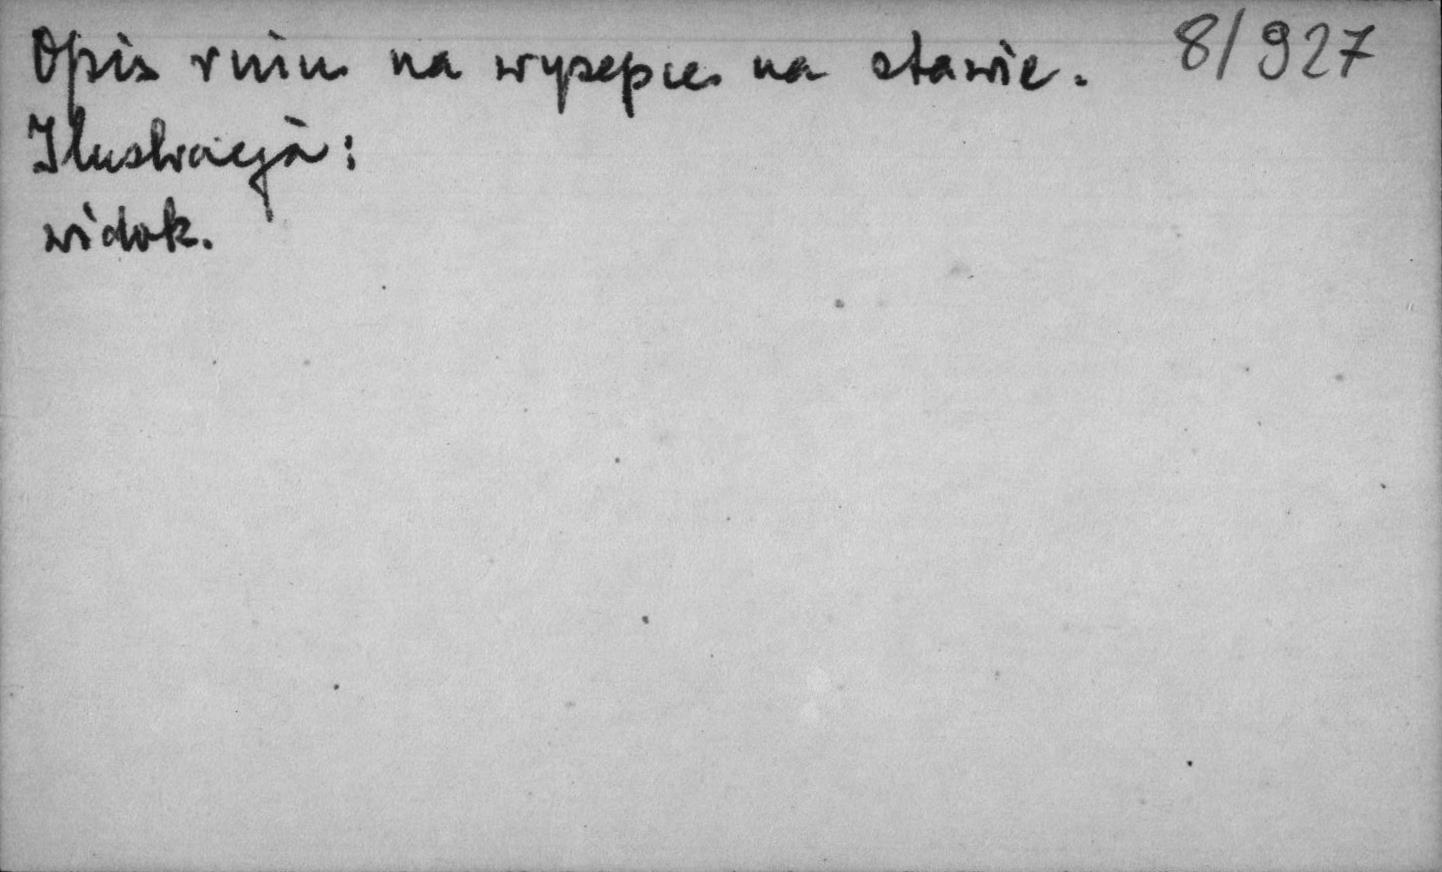 Opis ruin na wysepce na stawie. 8/927
Ilustracja:
widok.